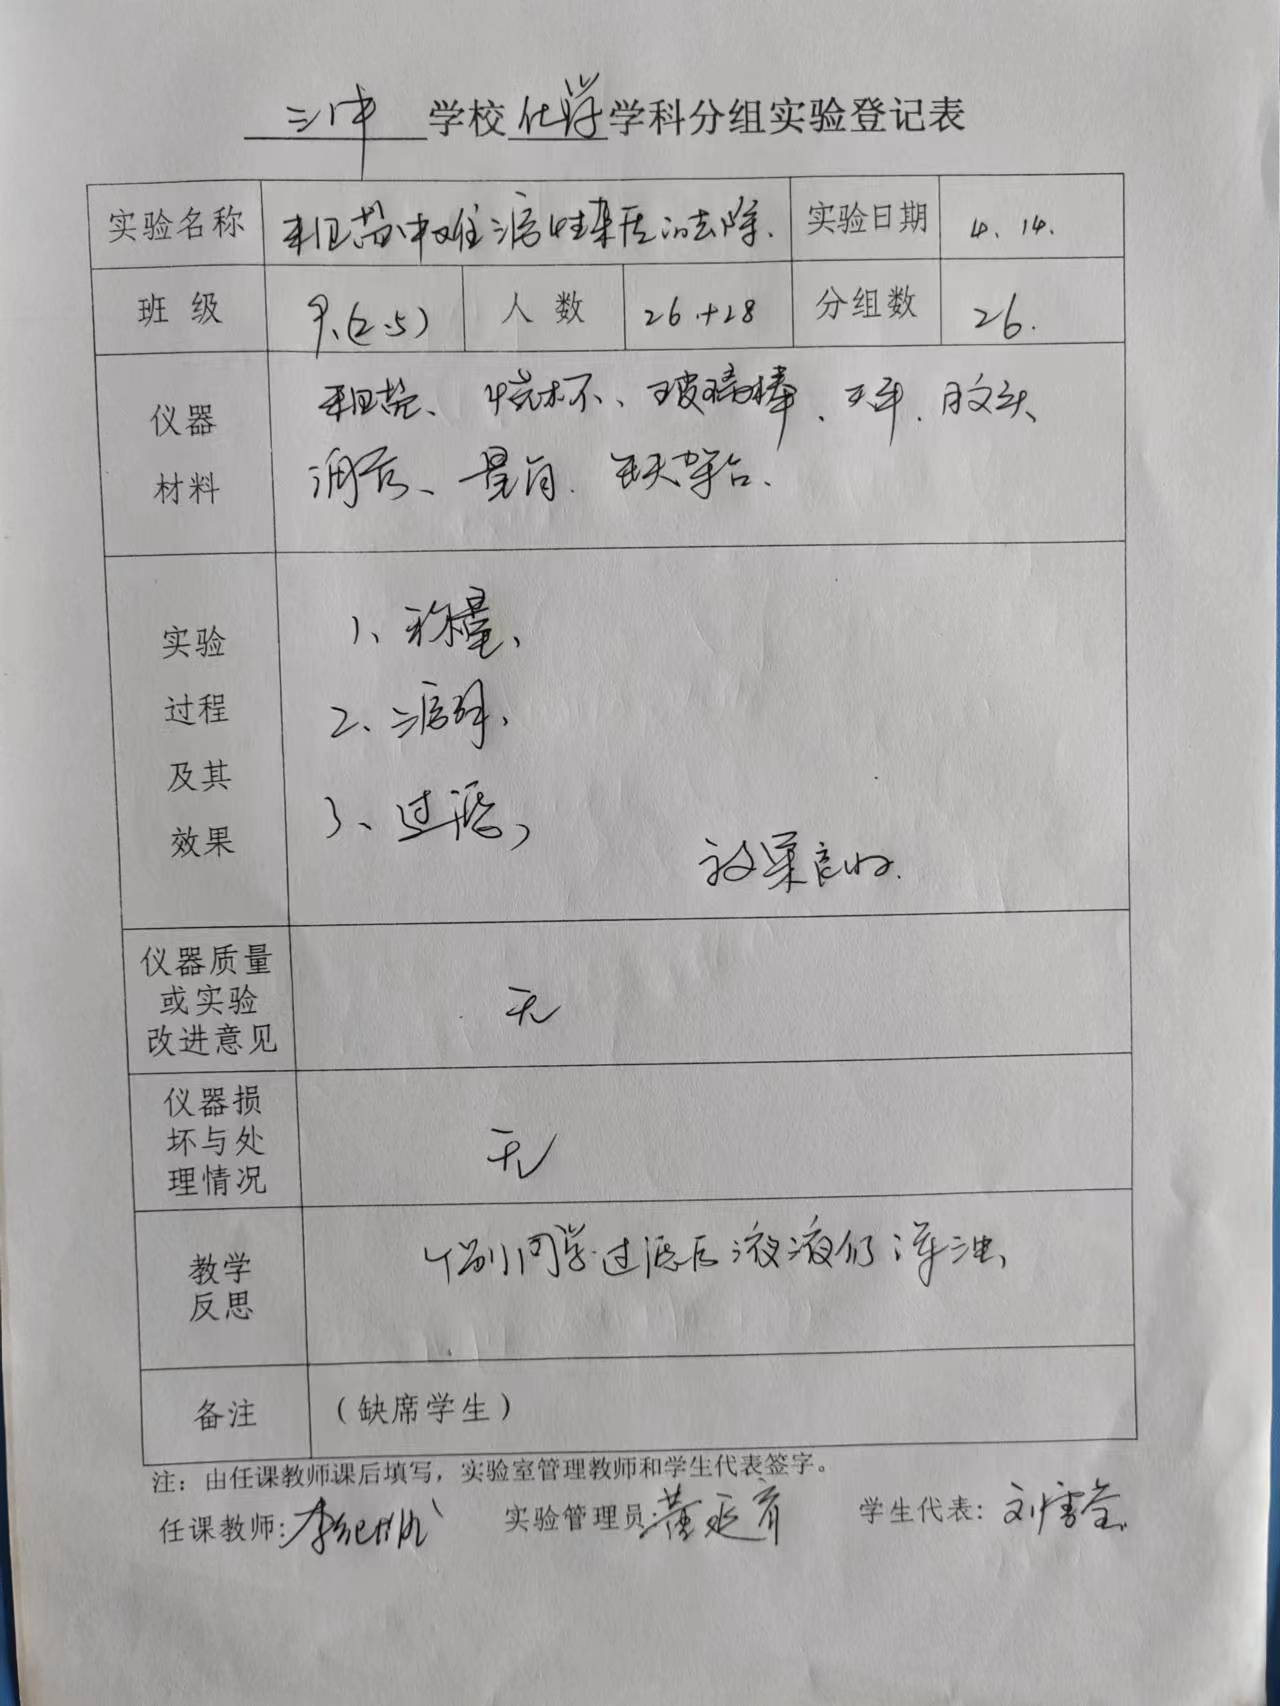 三中 学校 化学 学科分组实验登记表
实验名称 粗盐中难溶性杂质的去除. 实验日期 4. 14.
班 级 九(2.5) 人 数 26+28 分组数 26.
仪器 粗盐、烧杯、玻璃棒、天平、胶头
材料 滴管、量筒. 铁架台.
实验 1、称量、
过程 2、溶解、
及其 3、过滤、
效果 效果良好.
仪器质量
或实验 无
改进意见
仪器损
坏与处 无
理情况
教学 个别同学过滤后滤液仍浑浊
反思
备注 (缺席学生)
注: 由任课教师课后填写, 实验室管理教师和学生代表签字。
任课教师: 实验管理员: 董延育 学生代表: